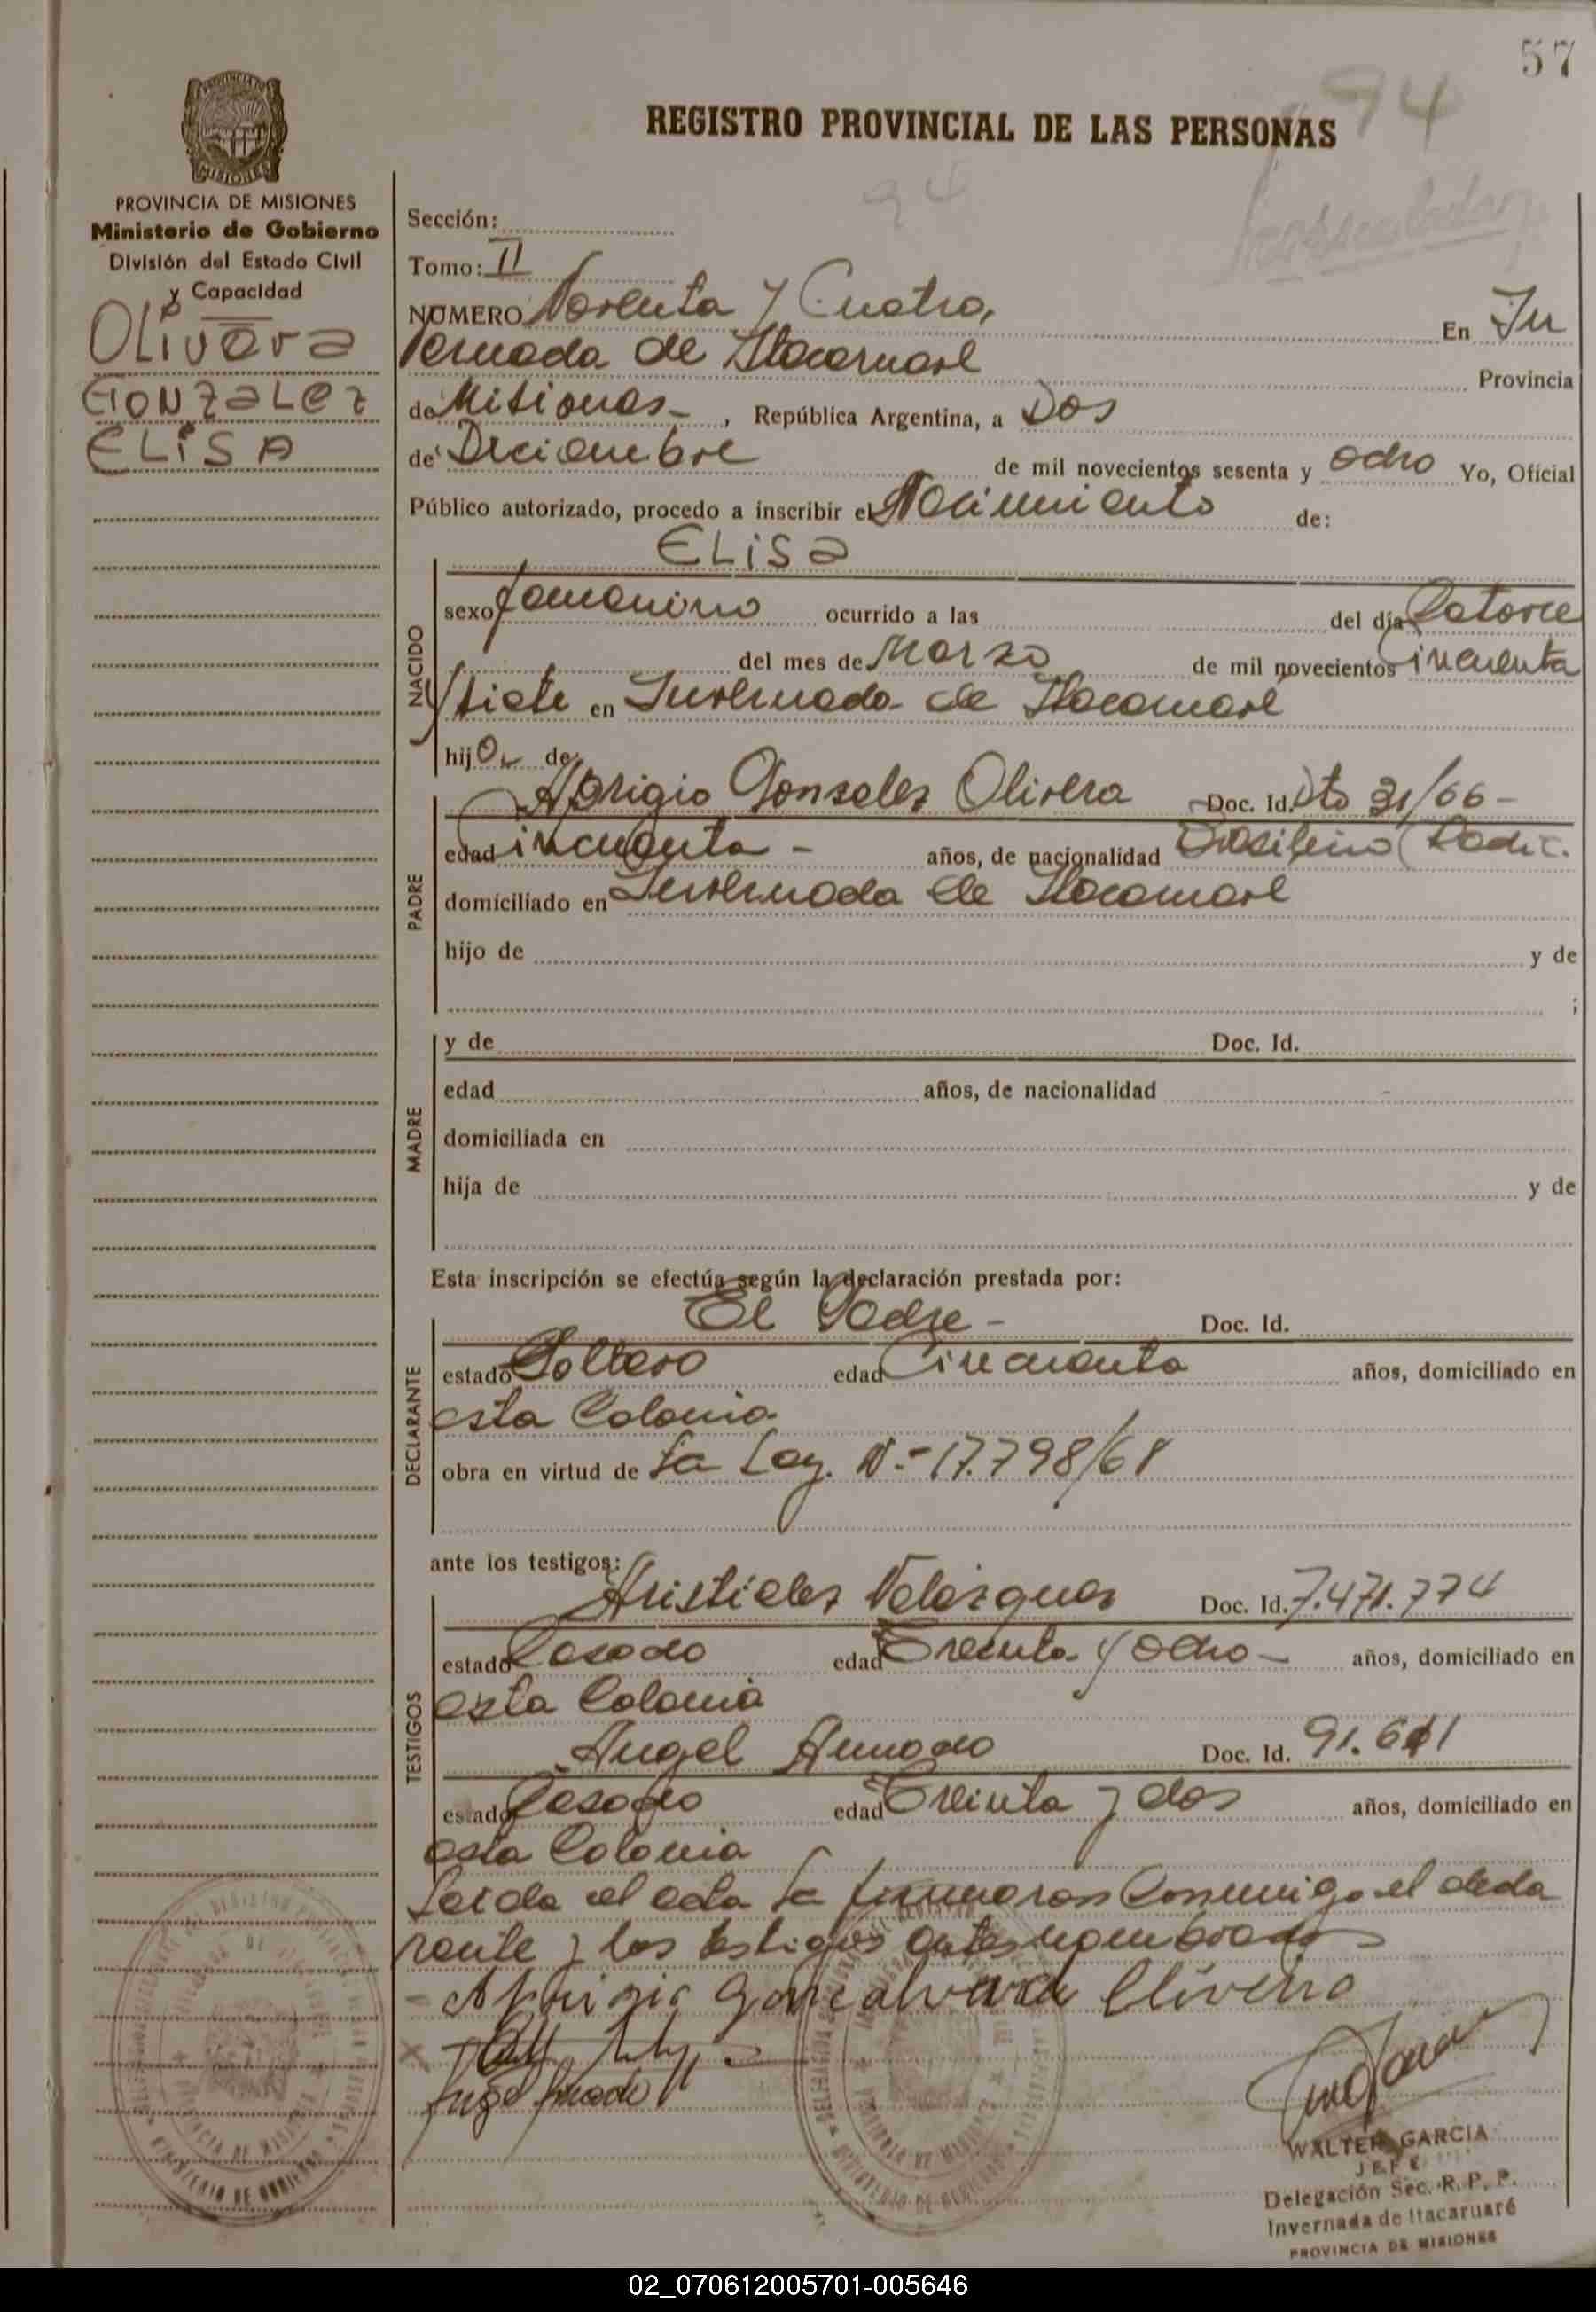 57
94
REGISTRO PROVINCIAL DE LAS PERSONAS
94
PROVINCIA DE MISIONES
Ministerio de Gobierno
División del Estado Civil
y Capacidad
OLivera
GONZaLez
ELiSA
Sección:
Tomo: II
NUMERO Noventa y Cuatro, En In
vernada de Itacaruare Provincia
de Misiones - , República Argentina, a Dos
de Diciembre de mil novecientos sesenta y ocho Yo, Oficial
Público autorizado, procedo a inscribir el Nacimiento de:
ELiSa
NACIDO
sexo femenino ocurrido a las del día Catorce
del mes de Marzo de mil novecientos cincuenta
y siete en Invernada de Itacaruare
hija de
PADRE
Aprigio Gonsales Olivera Doc. Id. Dto 31/66 -
edad cincuenta - años, de nacionalidad Brasilero (Radic.
domiciliado en Invernada de Itacaruare
hijo de y de
;
MADRE
y de Doc. Id.
edad años, de nacionalidad
domiciliada en
hija de y de
Esta inscripción se efectúa según la declaración prestada por:
DECLARANTE
El Padre - Doc. Id.
estado Soltero edad Cincuenta años, domiciliado en
esta Colonia
obra en virtud de la Ley. N.- 17.798/68
ante los testigos:
TESTIGOS
Aristides Velasquez Doc. Id. 7.471.774
estado Casado edad Treinta y Ocho - años, domiciliado en
esta Colonia
Angel Amado Doc. Id. 91.611
estado Casado edad Treinta y dos años, domiciliado en
esta Colonia
Leida el acta la firmaron Conmigo el decla
rante y los testigos antes nombrados
- Aprigio Gonçalves Oliveira
Angel Amado
WALTER GARCIA
JEFE
Delegación Sec. R. P. P.
Invernada de Itacaruaré
PROVINCIA DE MISIONES
02_070612005701-005646